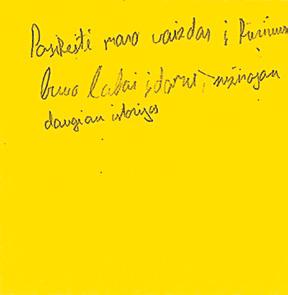 Pasikeitė mano vaizdas į kūrinius
buvo labai įdomu, sužinojau
daugiau istorijos